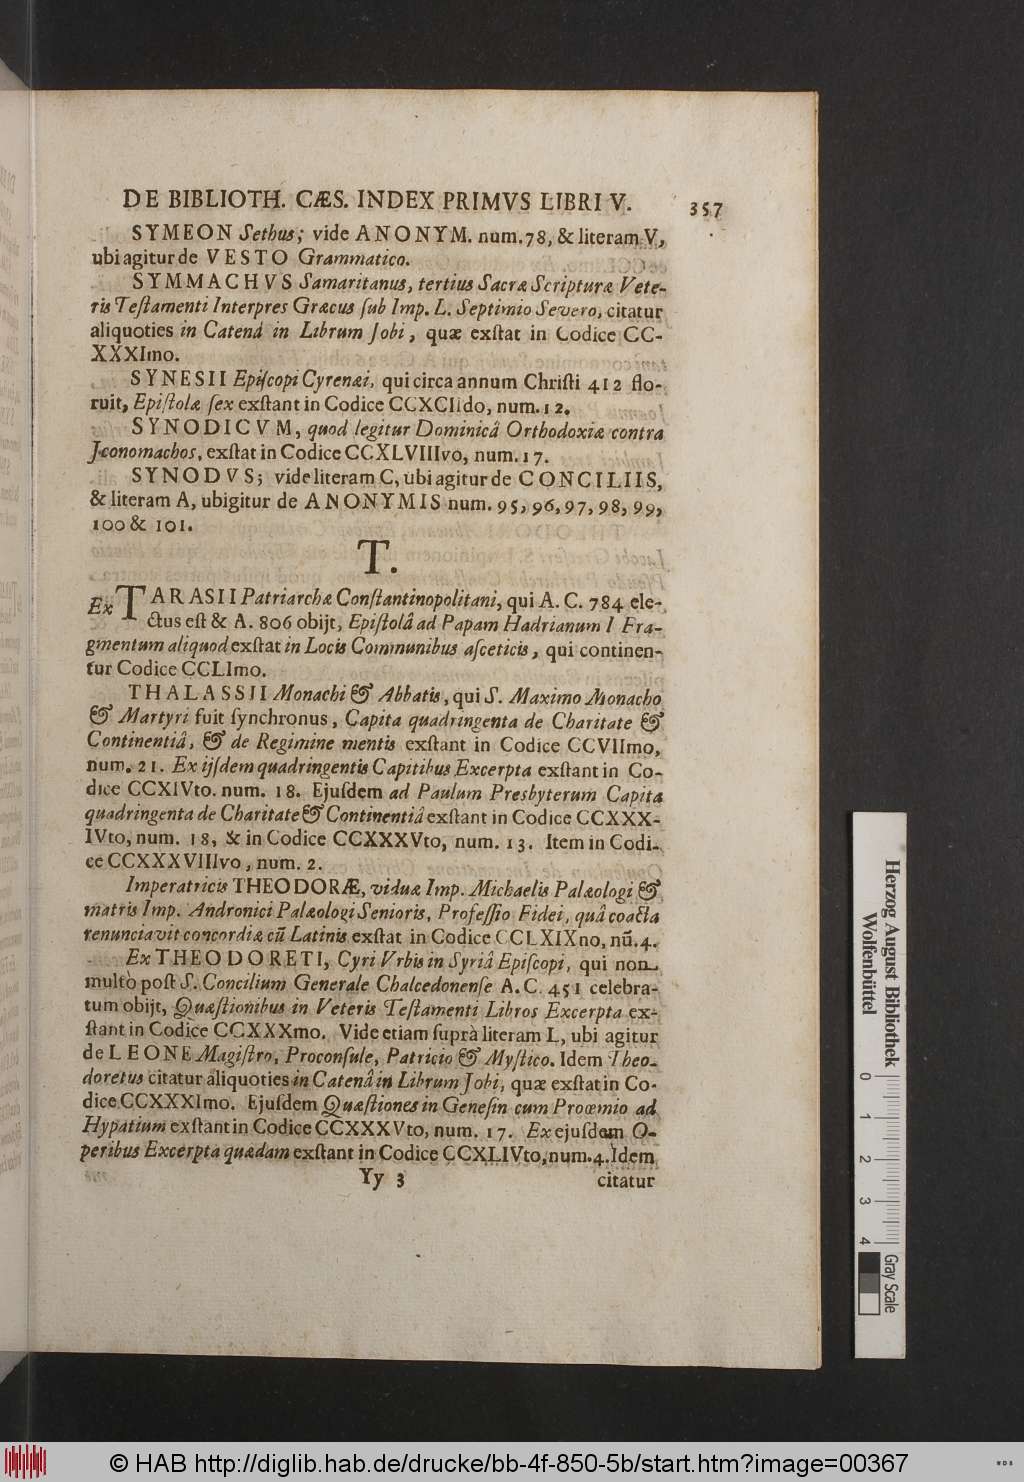 DE BIBLIOTH. CÆS. INDEX PRIMVS LIBRI V. 357
SYMEON Sethus; vide ANONYM. num. 78, & literam V,
ubi agitur de VESTO Grammatico.
SYMMACHVS Samaritanus, tertius Sacræ Scripturæ Vete-
ris Teſtamenti Interpres Græcus ſub Imp. L. Septimio Severo, citatur
aliquoties in Catenâ in Librum Jobi, quæ exſtat in Codice CC-
XXXImo.
SYNESII Epiſcopi Cyrenæi, qui circa annum Chriſti 412 flo-
ruit, Epiſtolæ ſex exſtant in Codice CCXCIIdo, num. 12.
SYNODICVM, quod legitur Dominicâ Orthodoxiæ contra
Iconomachos, exſtat in Codice CCXLVIIIvo, num. 17.
SYNODVS; vide literam C, ubi agitur de CONCILIIS,
& literam A, ubigitur de ANONYMIS num. 95, 96, 97, 98, 99,
100 & 101.
T.
Ex TARASII Patriarchæ Conſtantinopolitani, qui A. C. 784 ele-
ctus eſt & A. 806 obijt, Epiſtolâ ad Papam Hadrianum I Fra-
gmentum aliquod exſtat in Locis Communibus aſceticis, qui continen-
tur Codice CCLImo.
THALASSII Monachi & Abbatis, qui S. Maximo Monacho
& Martyri fuit ſynchronus, Capita quadringenta de Charitate &
Continentiâ, & de Regimine mentis exſtant in Codice CCVIImo,
num. 21. Ex ijſdem quadringentis Capitibus Excerpta exſtant in Co-
dice CCXIVto. num. 18. Ejuſdem ad Paulum Presbyterum Capita
quadringenta de Charitate & Continentiâ exſtant in Codice CCXXX-
IVto, num. 18, & in Codice CCXXXVto, num. 13. Item in Codi-
ce CCXXXVIIIvo, num. 2.
Imperatricis THEODORÆ, viduæ Imp. Michaelis Palæologi &
matris Imp. Andronici Palæologi Senioris, Profeſſio Fidei, quâ coacta
renunciavit concordiæ cũ Latinis exſtat in Codice CCLXIXno, nũ. 4.
Ex THEODORETI, Cyri Vrbis in Syriâ Epiſcopi, qui non
multò poſt S. Concilium Generale Chalcedonenſe A. C. 451 celebra-
tum obijt, Quæſtionibus in Veteris Teſtamenti Libros Excerpta ex-
ſtant in Codice CCXXXmo. Vide etiam ſuprà literam L, ubi agitur
de LEONE Magiſtro, Proconſule, Patricio & Myſtico. Idem Theo-
doretus citatur aliquoties in Catenâ in Librum Jobi, quæ exſtat in Co-
dice CCXXXImo. Ejuſdem Quæſtiones in Geneſin cum Proœmio ad
Hypatium exſtant in Codice CCXXXVto, num. 17. Ex ejuſdem O-
peribus Excerpta quædam exſtant in Codice CCXLIVto, num. 4. Idem
Yy 3 citatur
Herzog August Bibliothek
Wolfenbüttel
0 1 2 3 4
Gray Scale
© HAB http://diglib.hab.de/drucke/bb-4f-850-5b/start.htm?image=00367